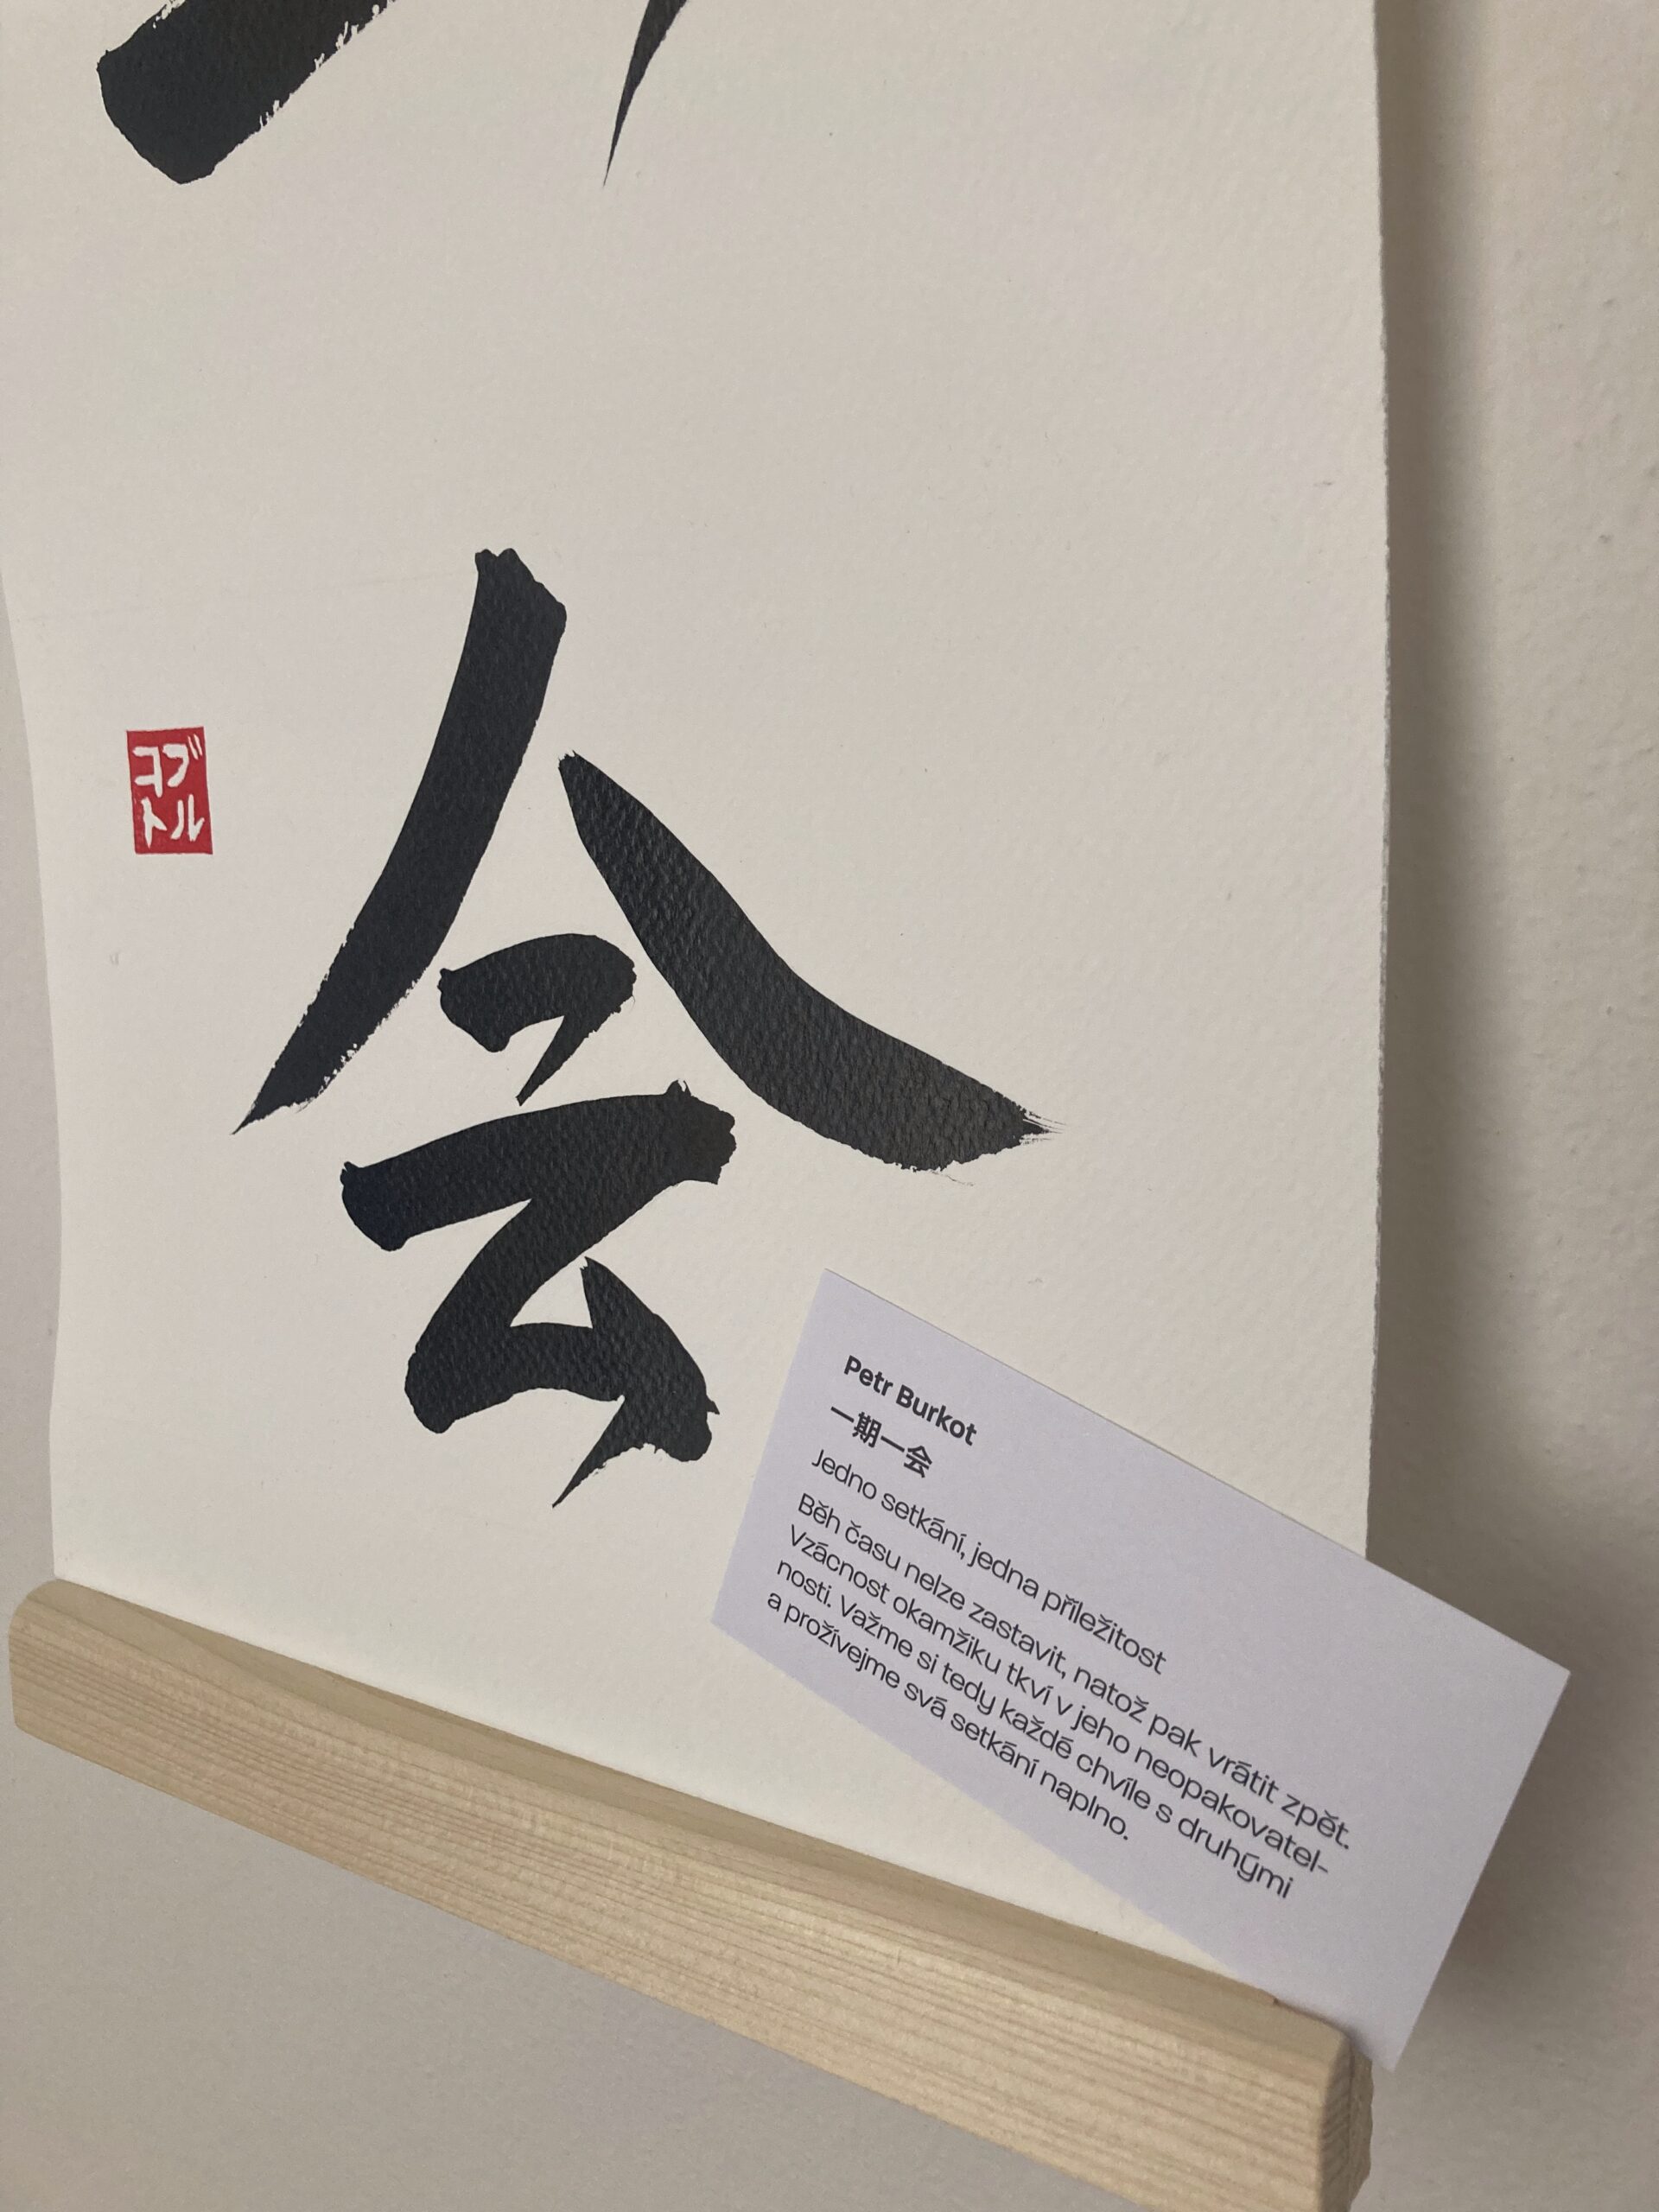 会
ブル
コト
Petr Burkot
一期一会
Jedno setkání, jedna příležitost
Běh času nelze zastavit, natož pak vrátit zpět.
Vzácnost okamžiku tkví v jeho neopakovatel-
nosti. Važme si tedy každé chvíle s druhými
a prožívejme svá setkání naplno.